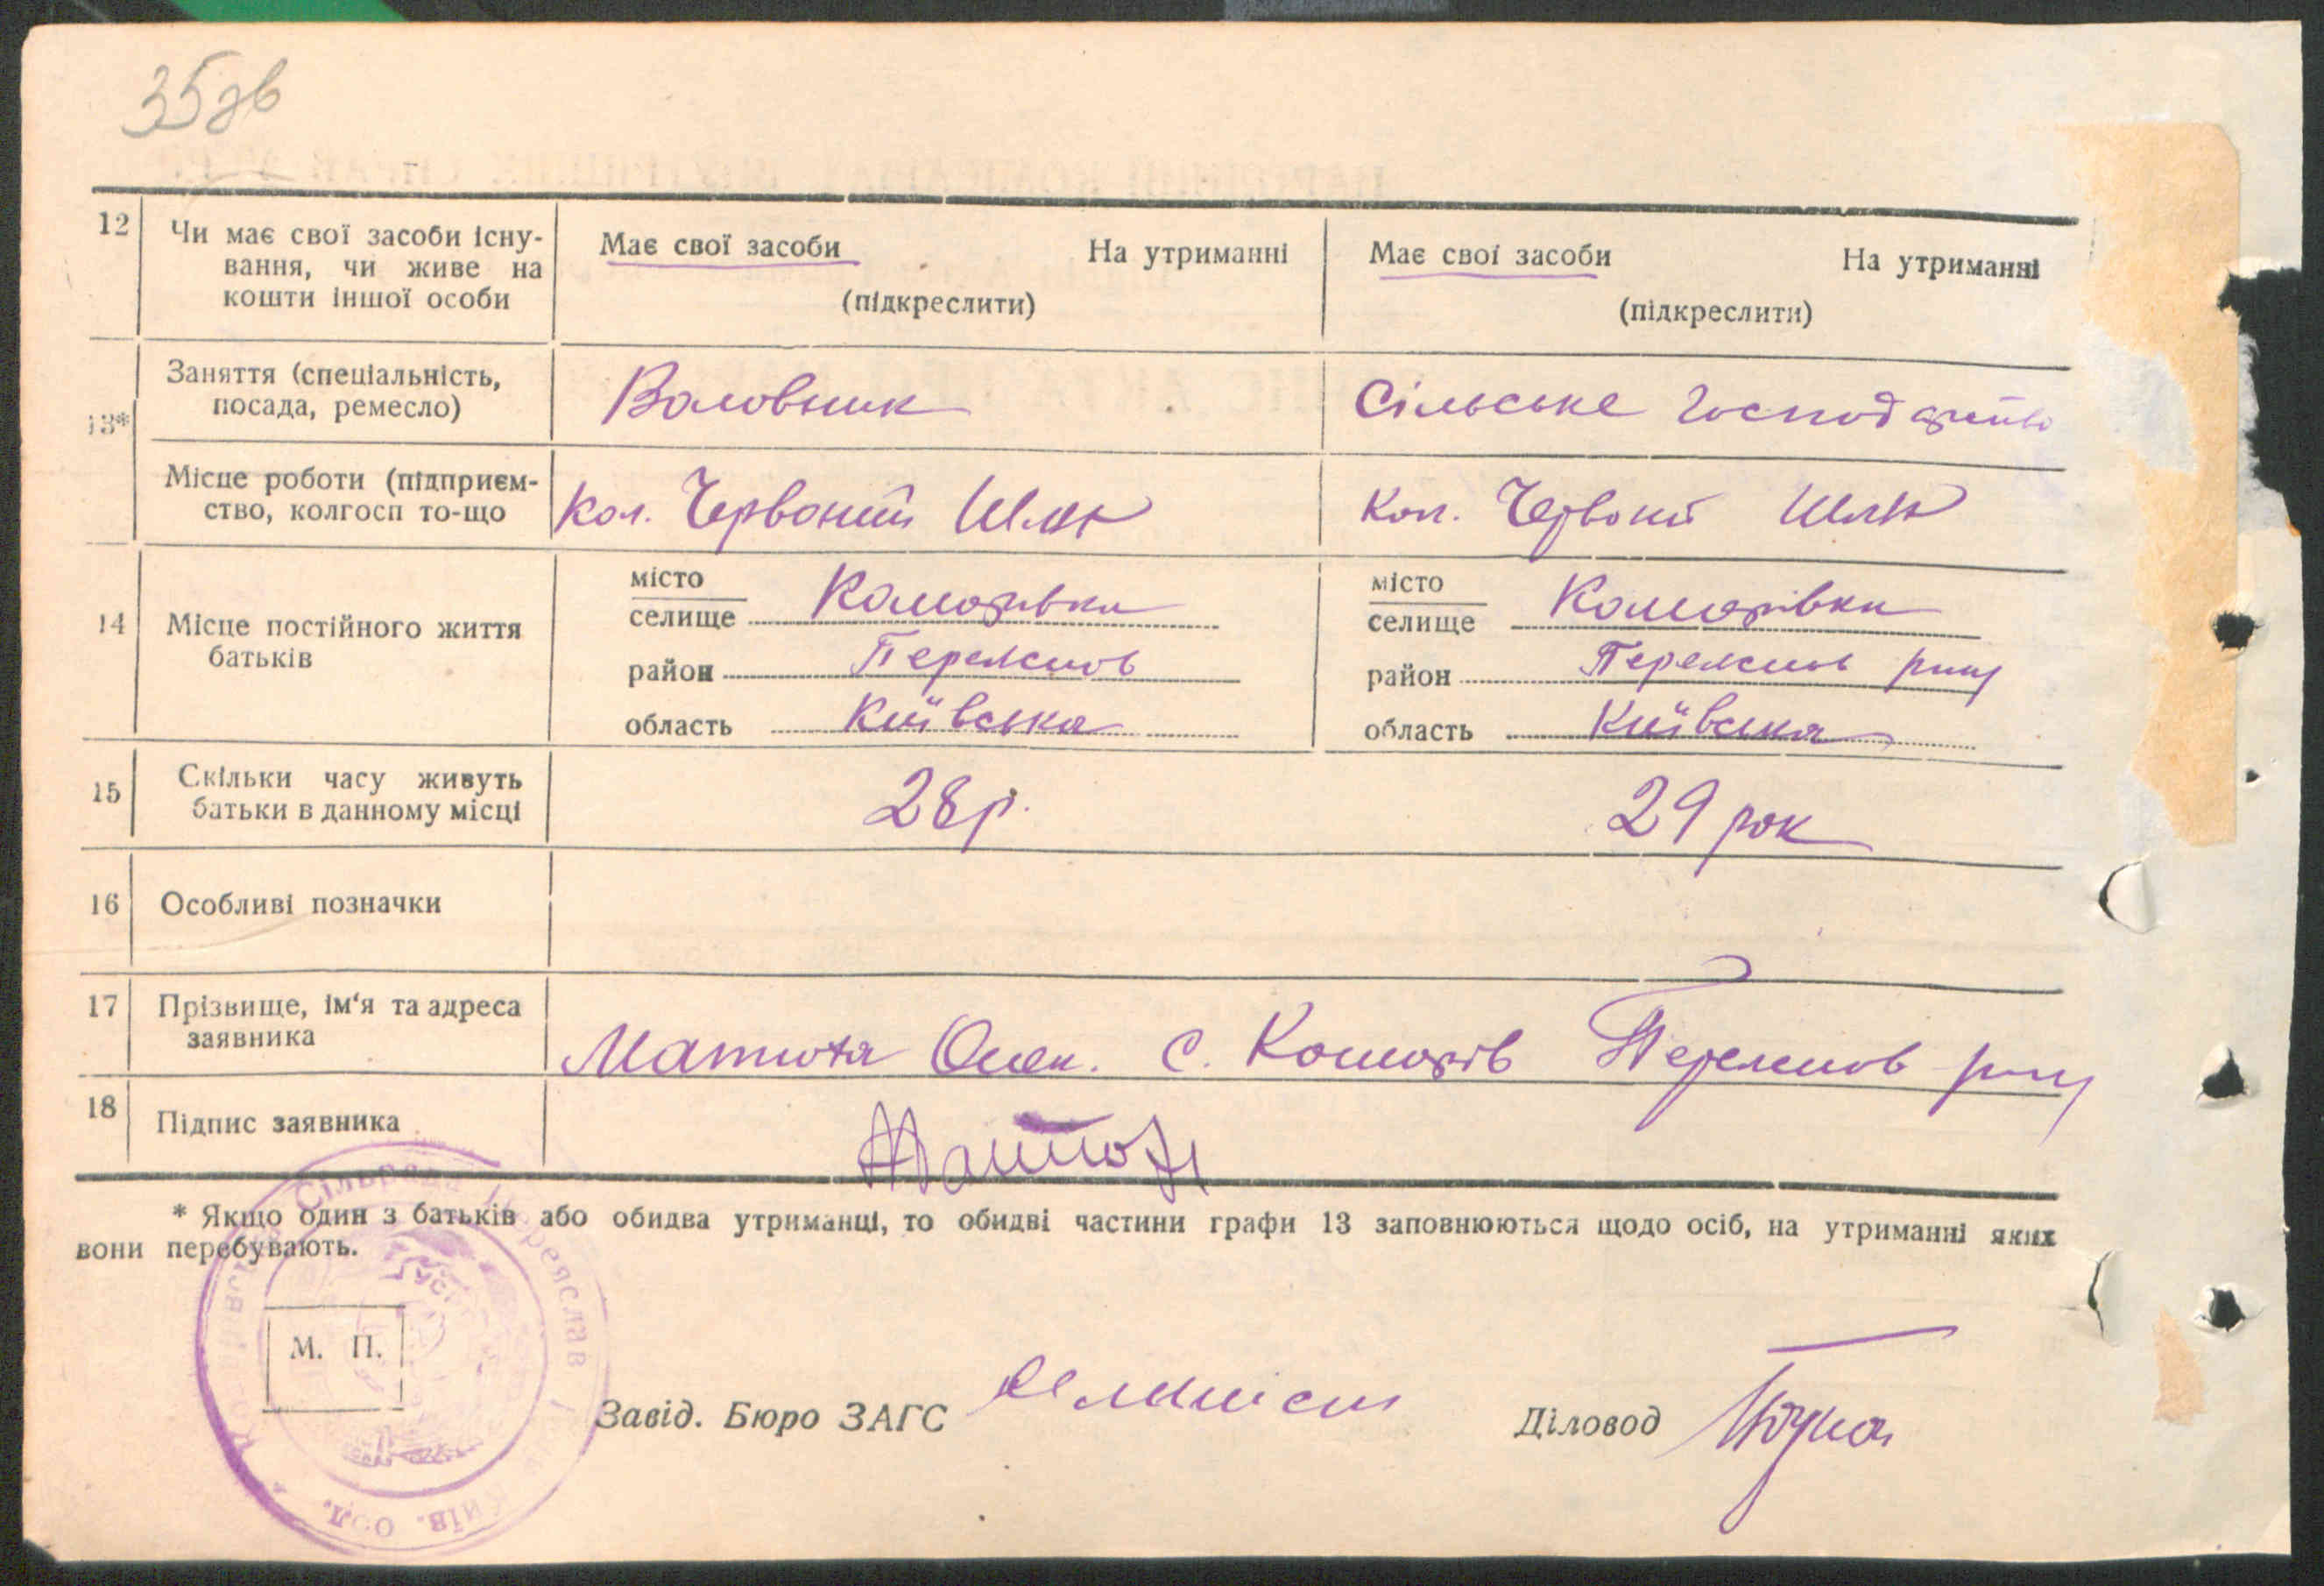 35 зв
12 Чи має свої засоби існу-
вання, чи живе на
кошти іншої особи
Має свої засоби На утриманні
(підкреслити)
Має свої засоби На утриманні
(підкреслити)
13*
Заняття (спеціальність,
посада, ремесло)
Воловник
Сільське господарство
Місце роботи (підприєм-
ство, колгосп то-що
Кол. Червоний Шлях
Кол. Червоний Шлях
14 Місце постійного життя
батьків
місто
селище Комарівка
район
область Київська
місто
селище Комарівка
район
область Київська
15 Скільки часу живуть
батьки в данному місці
28 р.
29 рок
16 Особливі позначки
17 Прізвище, ім'я та адреса
заявника
Матюха Олек. с.
18 Підпис заявника
Матюх
* Якщо один з батьків або обидва утриманці, то обидві частини графи 13 заповнюються щодо осіб, на утриманні яких
вони перебувають.
Сільрада Переяслав
Київ. обл.
М. П.
Завід. Бюро ЗАГС
Діловод